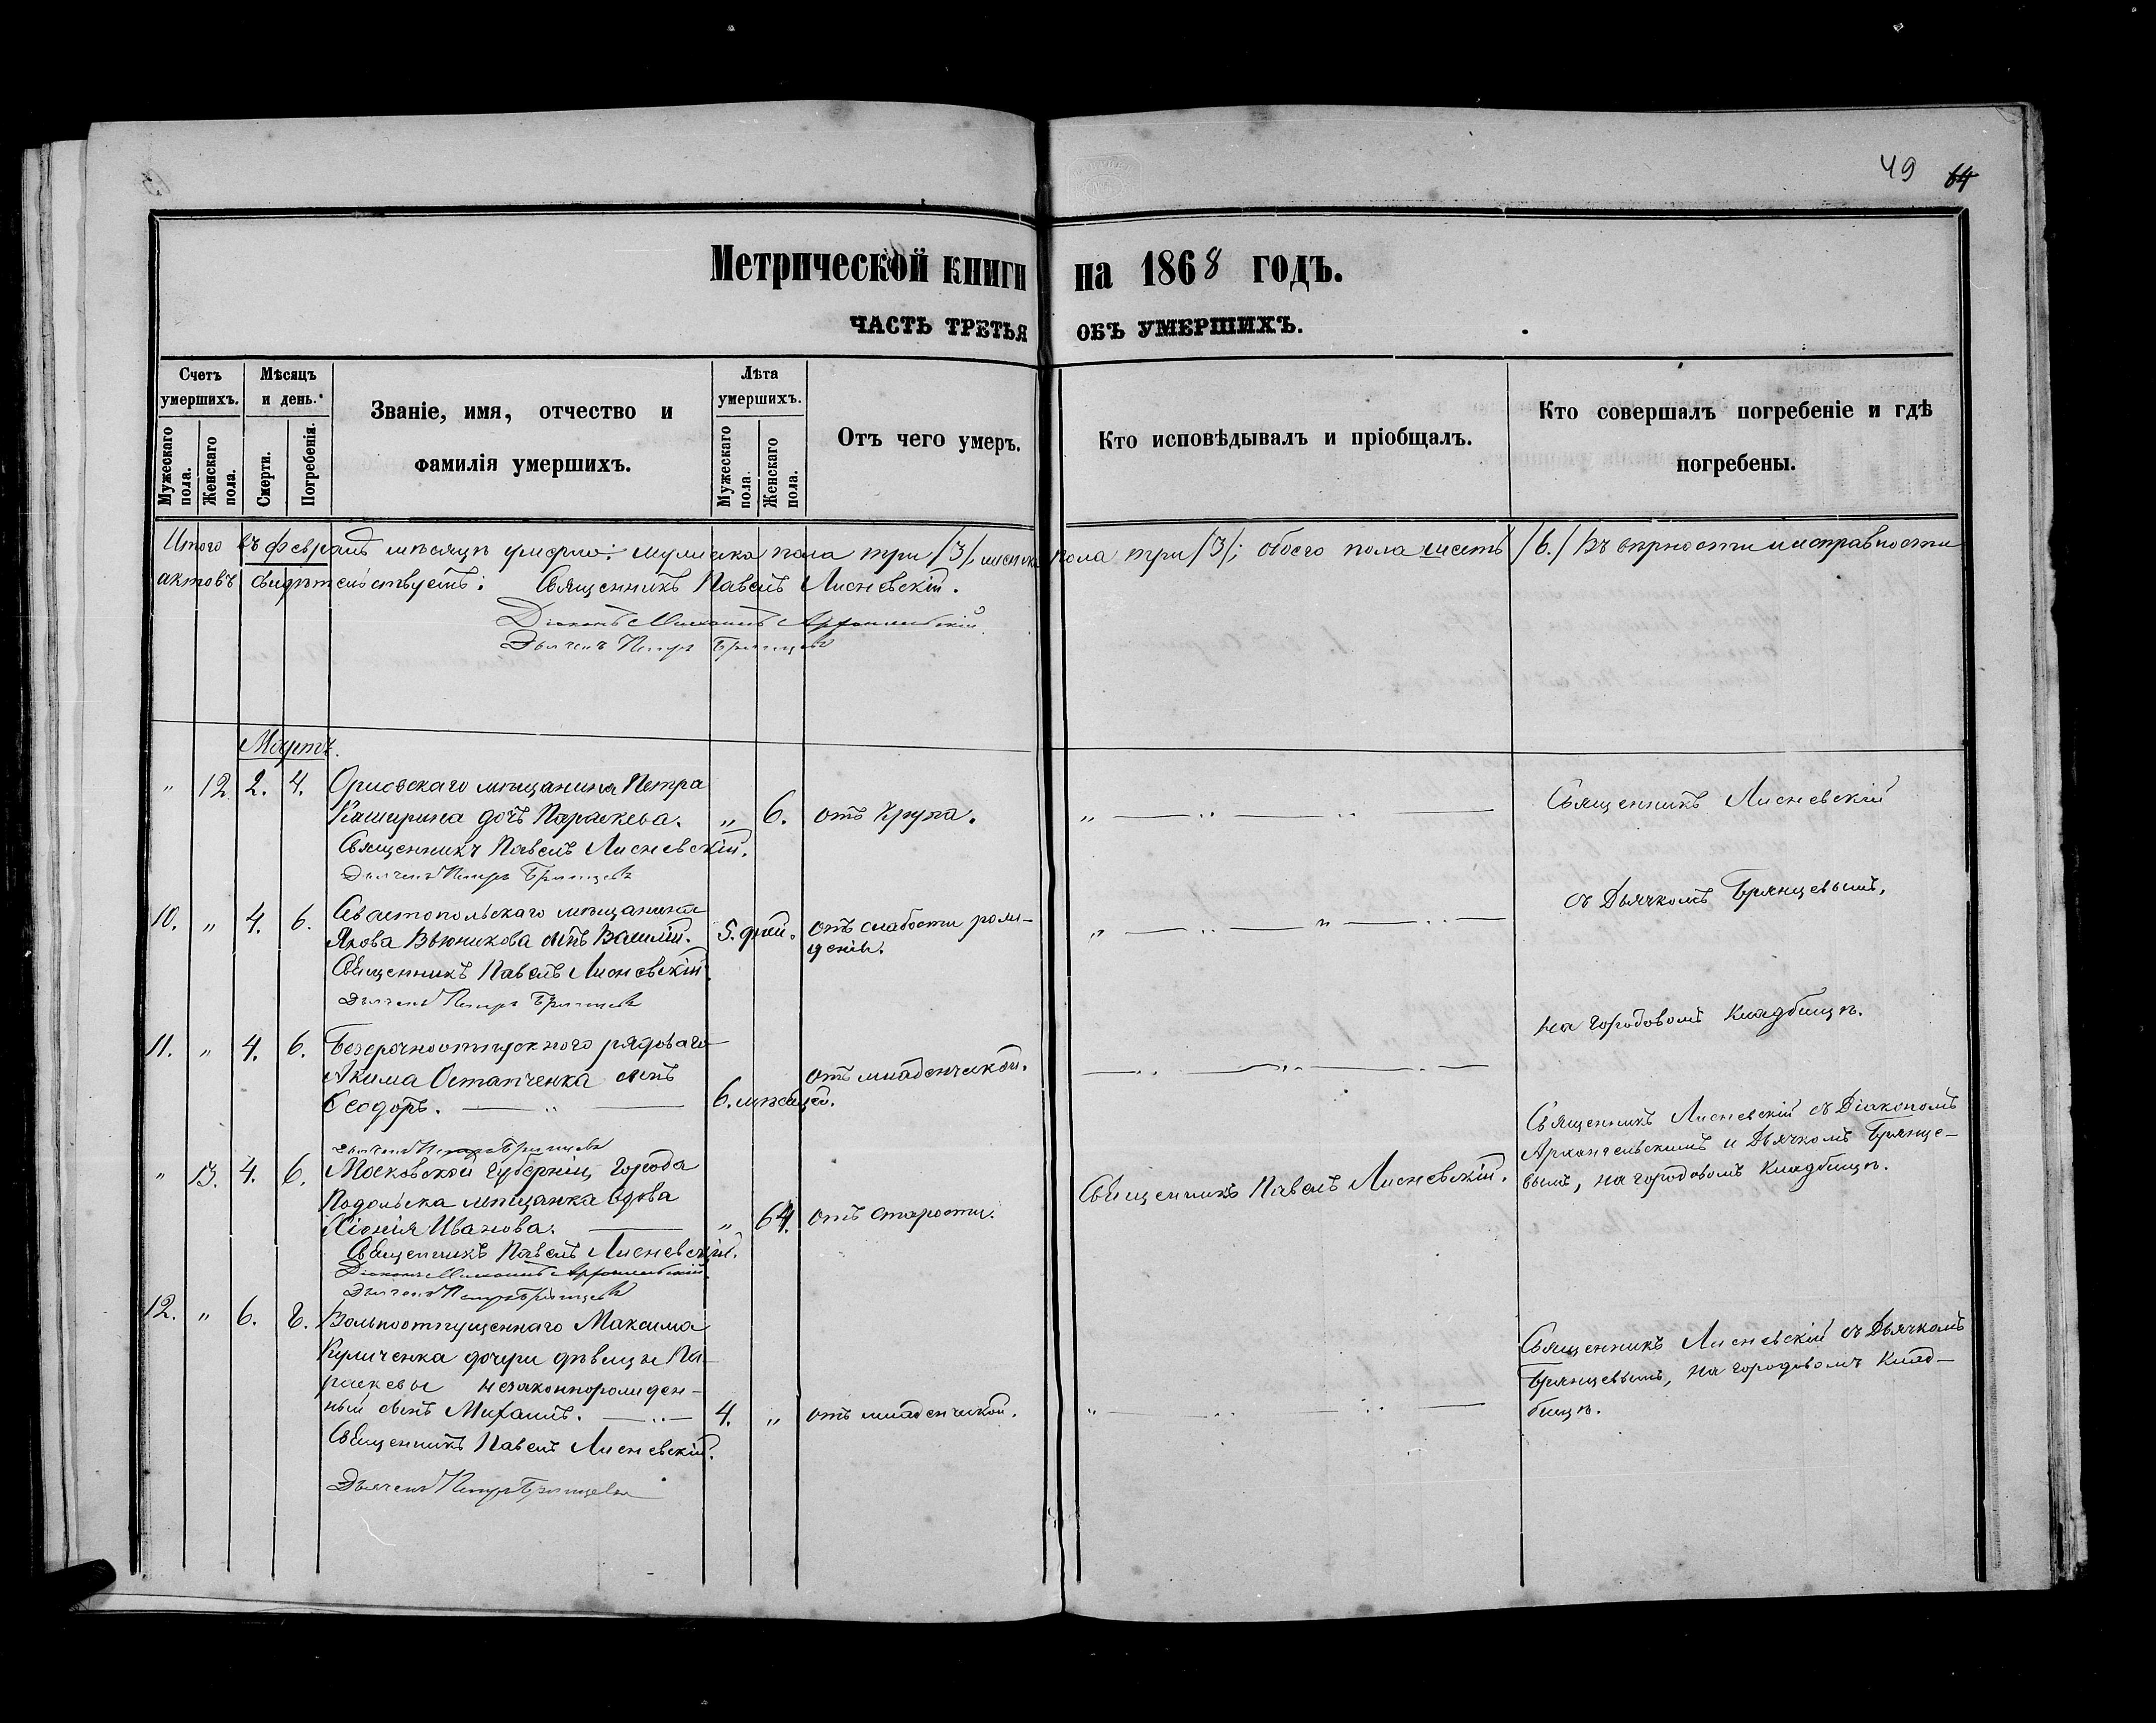 49 64
Метрической книги на 1868 годъ.
ЧАСТЬ ТРЕТЬЯ ОБЪ УМЕРШИХЪ.
Счетъ умершихъ.
Мужескаго пола.
Женскаго пола.
Мѣсяцъ и день.
Смерти.
Погребенія.
Званіе, имя, отчество и
фамилія умершихъ.
Лѣта умершихъ.
Мужескаго пола.
Женскаго пола.
Отъ чего умеръ.
Кто исповѣдывалъ и пріобщалъ.
Кто совершалъ погребеніе и гдѣ
погребены.
Итого въ февралѣ мѣсяцѣ умерло: мужеска пола три /3/, женска пола три /3/; обоего пола шесть /6./ Въ вѣрности и исправности
актовъ свидѣтельствуетъ: Священникъ Павелъ Лисневскій.
Діаконъ Михаилъ Архангельскій
Дьячекъ Петръ Брянцевъ
Мартъ.
" 12 2. 4. Орловскаго мѣщанина Петра
Каширина дочь Параскева. " 6. отъ крупа. "
Священникъ Павелъ Лисневскій.
Дьячекъ Петръ Брянцевъ
Священникъ Лисневскій
съ Дьячкомъ Брянцевымъ,
на городовомъ кладбищѣ.
10. " 4. 6. Севастопольскаго мѣщанина
Якова Вьюникова сынъ Василій. 5. дней. отъ слабости рож-
денія. " "
Священникъ Павелъ Лисневскій.
Дьячекъ Петръ Брянцевъ
11. " 4. 6. Безсрочноотпускного рядоваго
Акима Остапченка сынъ
Ѳеодоръ. " 6. мѣсяцей. отъ младенческой.
Дьячекъ Петръ Брянцевъ
" 13. 4. 6. Московской губерніи, города
Подольска мѣщанка вдова
Хіонія Иванова. " 64. отъ старости.
Священникъ Павелъ Лисневскій.
Священникъ Павелъ Лисневскій.
Діаконъ Михаилъ Архангельскій
Дьячекъ Петръ Брянцевъ
Священникъ Лисневскій съ Діакономъ
Архангельскимъ и Дьячкомъ Брянце-
вымъ, на городовомъ кладбищѣ.
12. " 6. 8. Вольноотпущеннаго Максима
Куличенка дочери дѣвицы Па-
раскевы незаконнорожден-
ный сынъ Михаилъ. 4. " отъ младенческой. "
Священникъ Павелъ Лисневскій.
Дьячекъ Петръ Брянцевъ
Священникъ Лисневскій съ Дьячкомъ
Брянцевымъ, на городовомъ клад-
бищѣ.